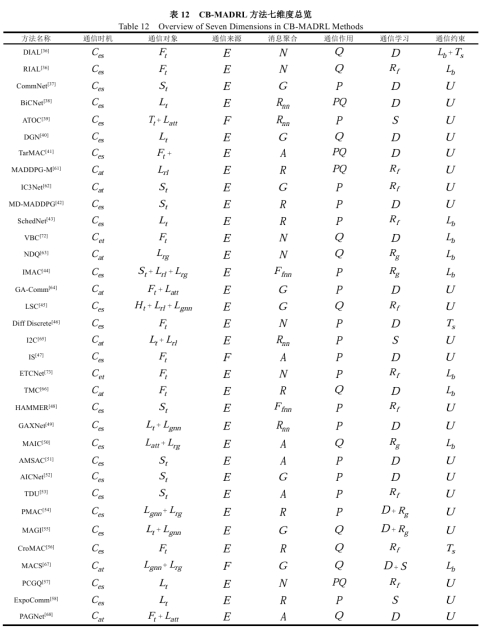 表 12 CB-MADRL 方法七维度总览
Table 12 Overview of Seven Dimensions in CB-MADRL Methods
方法名称 通信时机 通信对象 通信来源 消息聚合 通信作用 通信学习 通信约束
DIAL[36] C_es F_t E N Q D L_b+T_s
RIAL[36] C_es F_t E N Q R_f L_b
CommNet[37] C_es S_t E G P D U
BiCNet[38] C_es L_t E R_nn PQ D U
ATOC[59] C_es T_t+L_att F R_nn P S U
DGN[40] C_es L_t E G Q D U
TarMAC[41] C_es F_t+ E A PQ D U
MADDPG-M[61] C_at L_rl E R PQ R_f U
IC3Net[62] C_at S_t E G P R_f U
MD-MADDPG[42] C_es S_t E R P D U
SchedNet[43] C_es L_t E R P R_f L_b
VBC[72] C_et F_t E N Q D L_b
NDQ[63] C_at L_rg E N Q R_g L_b
IMAC[44] C_es S_t+L_rl+L_rg E F_fnn P R_g L_b
GA-Comm[64] C_at F_t+L_att E G P D U
LSC[45] C_es H_t+L_rl+L_gnn E G Q R_f U
Diff Discrete[46] C_es F_t E N P D T_s
I2C[65] C_at L_t+L_rl E R_nn P S U
IS[47] C_es F_t F A P D U
ETCNet[73] C_et F_t E N P R_f L_b
TMC[66] C_at F_t E R Q D L_b
HAMMER[48] C_es S_t E F_fnn P R_f U
GAXNet[49] C_es L_t+L_gnn E R_nn P D U
MAIC[50] C_es L_att+L_rg E A Q R_g L_b
AMSAC[51] C_es S_t E A P D U
AICNet[52] C_es S_t E G P D U
TDU[53] C_es S_t E A P R_f U
PMAC[54] C_es L_gnn+L_rg E R P D+R_g U
MAGI[55] C_es L_t+L_gnn E G Q D+R_g U
CroMAC[56] C_es F_t E R Q R_f T_s
MACS[67] C_at L_gnn+L_rg F G Q D+S L_b
PCGQ[57] C_es L_t E N PQ R_f U
ExpoComm[58] C_es L_t E R P S U
PAGNet[68] C_at F_t+L_att E A Q D U